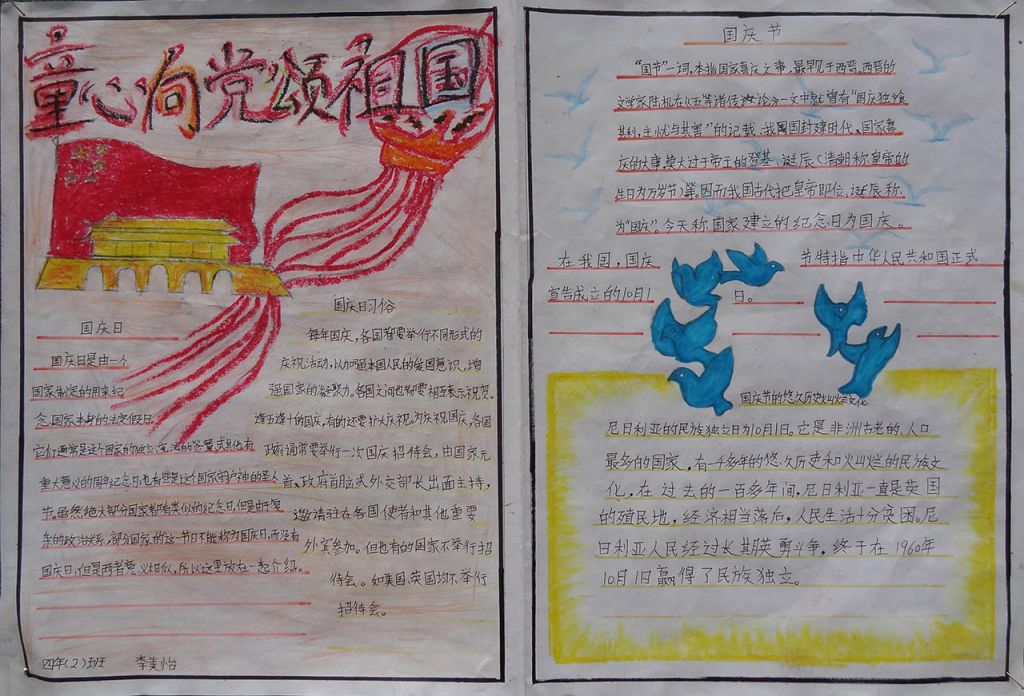 童心向党颂祖国
国庆日
国庆日是由一个
国家制定的用来纪
念国家本身的法定假日。
它们通常是这个国家的独立、宪法的签署或其他有
重大意义的周年纪念日也有些是这个国家守护神的圣人
节。虽然绝大部分国家都有类似的纪念日,但是由于复
杂的政治关系,部分国家的这一节日不能称为国庆日,而没有
国庆日,但是两者意义相似,所以这里放在一起介绍。
四年(2)班 李美怡
国庆日习俗
每年国庆,各国都要举行不同形式的
庆祝活动,以加强本国人民的爱国意识,增
强国家的凝聚力。各国之间也都要相互表示祝贺。
逢五逢十的国庆,有的还要扩大庆祝。为庆祝国庆,各国
政府通常要举行一次国庆招待会,由国家元
首、政府首脑或外交部长出面主持,
邀请驻在各国使者和其他重要
外宾参加。但也有的国家不举行招
待会。如美国、英国均不举行
招待会。
国庆节
"国节"一词,本指国家喜庆之事,最早见于西晋,西晋的
文学家陆机在《五等诸侯论》一文中就曾有"国庆独飨
其利,主忧与其害"的记载、我国封建时代、国家喜
庆的大事,莫大过于帝王的登基、诞辰(清朝称皇帝的
生日为万岁节)等。因而我国古代把皇帝即位、诞辰称
为"国庆"。今天称国家建立的纪念日为国庆。
在我国,国庆 节特指中华人民共和国正式
宣告成立的10月1 日。
国庆节的悠久历史火山烂文化
尼日利亚的民族独立日为10月1日。它是非洲古老的、人口
最多的国家,有一千多年的悠久历史和火山烂的民族文
化,在过去的一百多年间,尼日利亚一直是英国
的殖民地,经济相当落后,人民生活十分贫困。尼
日利亚人民经过长期英勇斗争,终于在1960年
10月1日赢得了民族独立。